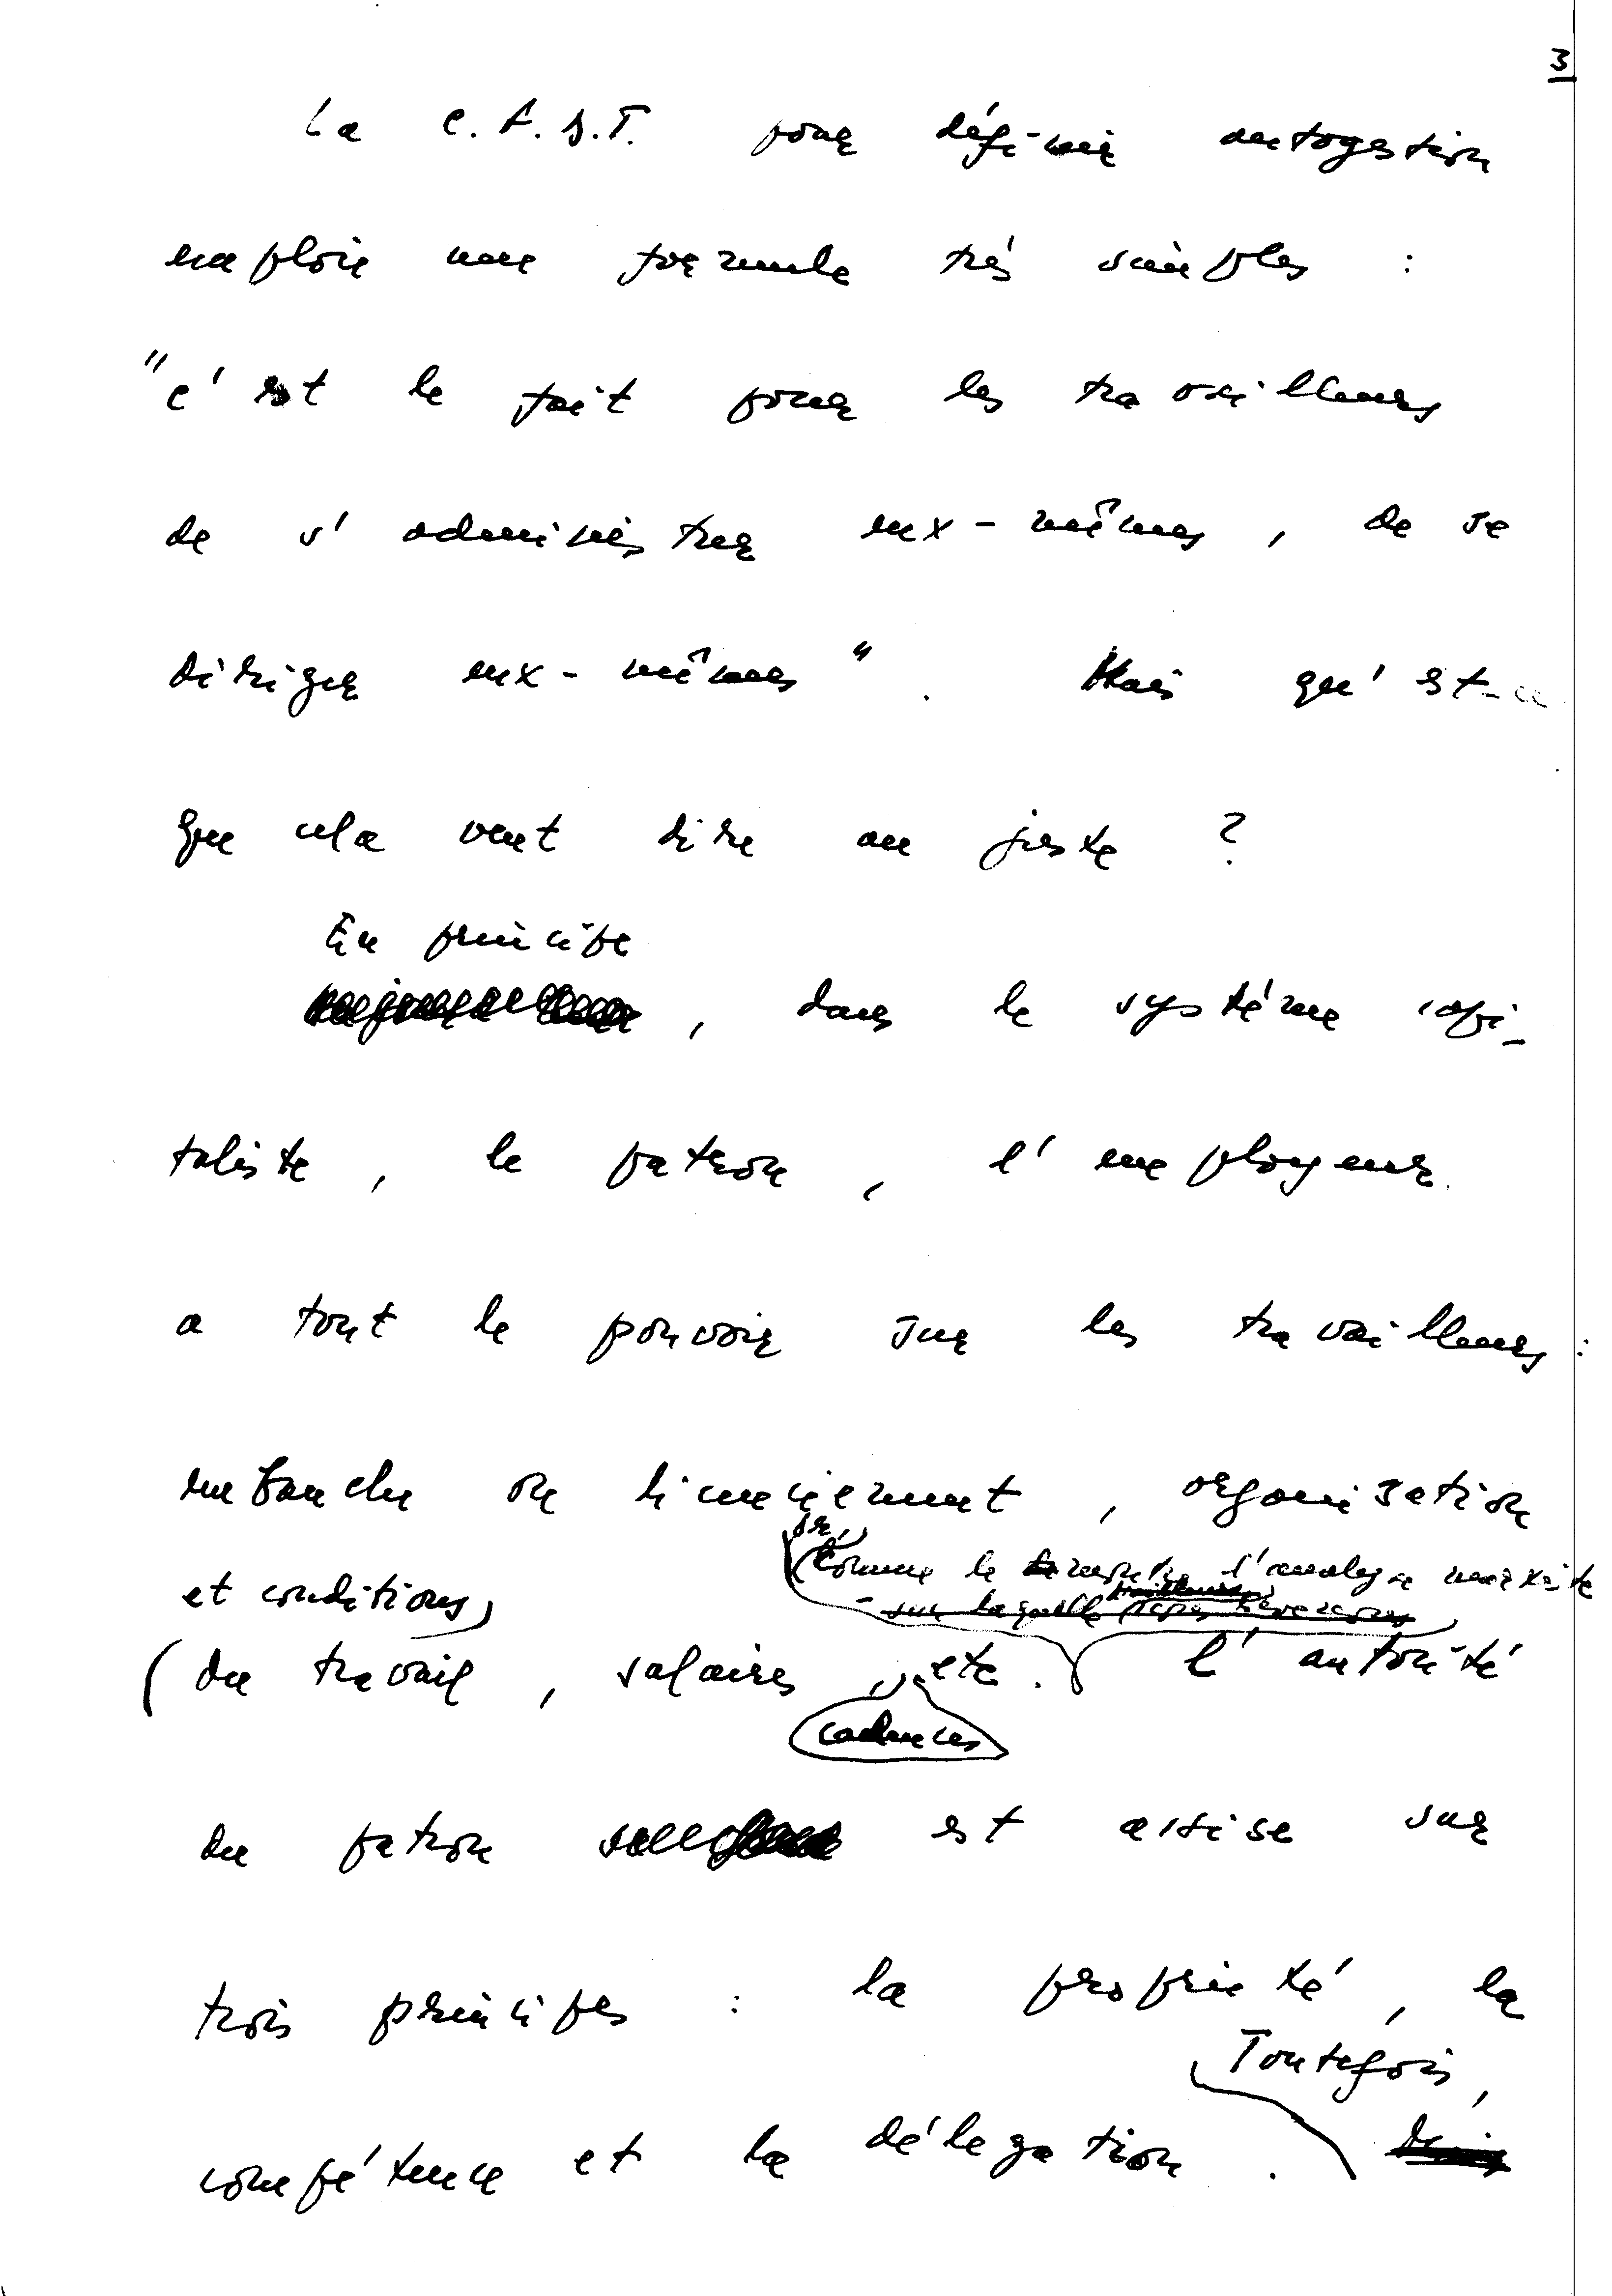 3
La C.F.D.T. pour définir autogestion
emploie une formule très simples :
"c'est le fait pour les travailleurs
de s'administrer eux-mêmes, de se
diriger eux-mêmes". Mais qu'est-ce
que cela veut dire au juste ?
En principe
, dans le système capi-
taliste, le patron, l'employeur
a tout le pouvoir sur les travailleurs :
embauche ou licenciement, organisation
or,
(comme le montre l'analyse marxiste
et conditions)
- sur laquelle nous reviendrons
(du travail, salaires, etc. l'autorité
cadences
du patron est assise sur
trois principes : la propriété, la
Toutefois,
compétence et la délégation.